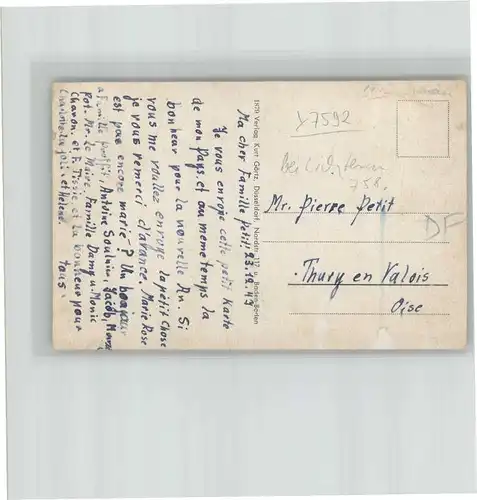 Ma cher Famille Petit! 23.12.43
Je vous enroje cette petit Karte
de mon Pays. et au meme temps la
bonheur pour la nouvelle An. Si
vous me voullez enroye la petit Chose
je vous remerci d'avance. Marie Rose
est pas encore marié? Un bonjour
a Famille Antoine Soulnie, Jacob,
Pot. Mr. Le Maire. Famille Damy u.
Charon. et F. Tissie, et la bonheur pour
et Helene. tous.
1870 Verlag Kurt Görtz, Düsseldorf, Nordstr. u. Baden-Baden
y7592
758.
DF
Mr. Pierre Petit
Thury en Valois
Oise